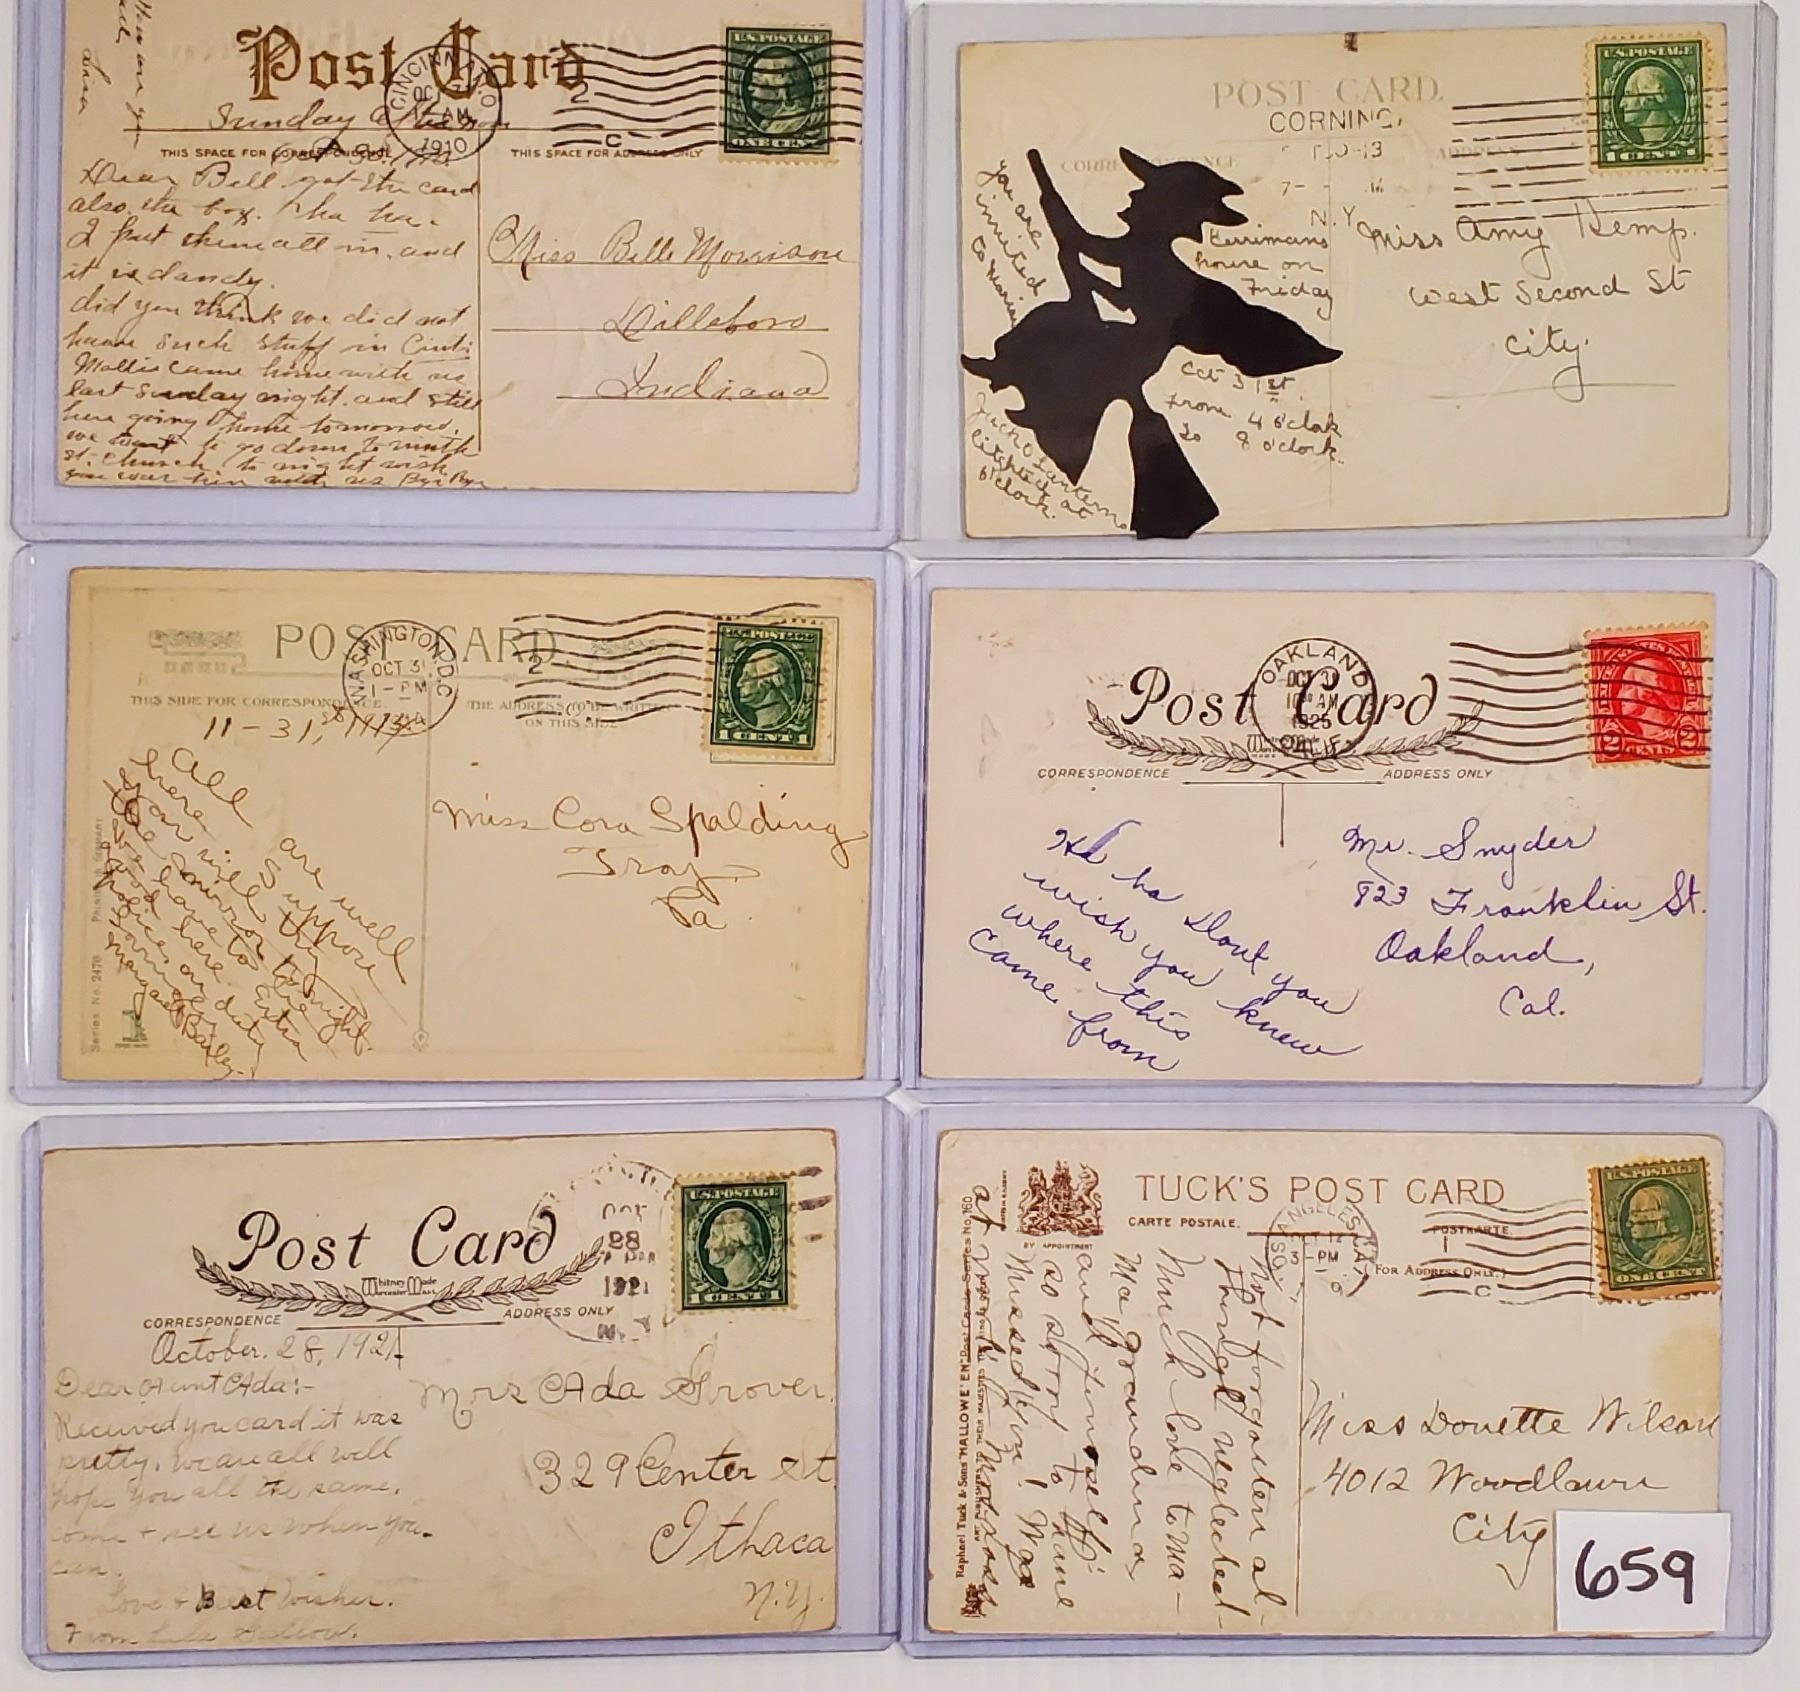 How are you
Lina
Post Card
CINCINNATI, O.
OCT
AM
1910
2
C
U.S. POSTAGE
ONE CENT
Sunday Afternoon
THIS SPACE FOR CORRESPONDENCE
THIS SPACE FOR ADDRESS ONLY
Dear Bell got the card
also the box. ha ha.
I put them all in, and
it is dandy.
did you think we did not
have such stuff in Cinti
Mollie came home with us
last Sunday night and still
here going home tomorrow.
we want to go down to ninth
st. church to night wish
you was here with us Bye Bye
Miss Belle Morrison
Dillsboro
Indiana
POST CARD.
CORNING,
13
7-
N.Y.
U.S. POSTAGE
1 CENT 1
CORRESPONDENCE
ADDRESS
you are
invited
to Marian
Kerrimans
house on
Friday
Oct 31st.
from 4 o'clok
to 8 o'clock..
Jack O Lanterns
lighted at
6 o'clock.
Miss Amy Kemp.
West Second St
City.
POST CARD
WASHINGTON, D.C.
OCT 31
1-PM
2
U.S. POSTAGE
1 CENT 1
THIS SIDE FOR CORRESPONDENCE.
THE ADDRESS TO BE WRITTEN
ON THIS SIDE
11-31,
All are well
here. Suppose
you will try
the mirror to night.
We have to the
good here. Extra
polices on duty
Margaret Bailey.
Series No. 2470
Miss Cora Spalding
Troy
Pa.
Post Card
OAKLAND
OCT 31
10 30 AM
1925
CALIF.
2 CENTS 2
Whitney Made
CORRESPONDENCE
ADDRESS ONLY
Ha ha Dont you
wish you knew
where this
came from
Mr. Snyder
823 Franklin St.
Oakland,
Cal.
Post Card
OCT
28
1921
N.Y.
U.S. POSTAGE
1 CENT 1
Whitney Made
Worcester Mass.
CORRESPONDENCE
ADDRESS ONLY
October. 28, 1921
Dear Aunt Ada:-
Received you card it was
pretty. We are all well
hope you all the same.
come + see us when you
can.
Love + Best Wishes.
From Lula
Mrs Ada Grover.
329 Center St
Ithaca
N.Y.
TUCK'S POST CARD
CARTE POSTALE.
POSTKARTE.
BY APPOINTMENT
(FOR ADDRESS ONLY.)
LOS ANGELES, CAL
OCT 12
3-PM
1
C
U.S. POSTAGE
ONE CENT
Raphael Tuck & Sons "HALLOWE'EN" Post Card Series No. 160
ART PUBLISHERS TO THEIR MAJESTIES
Not forgotten al-
though neglected-
Much love to Ma-
Ma Grandma
and yourself
so sorry to have
missed you! Was
at
Miss Donette Wilson
4012 Woodlawn
City
659